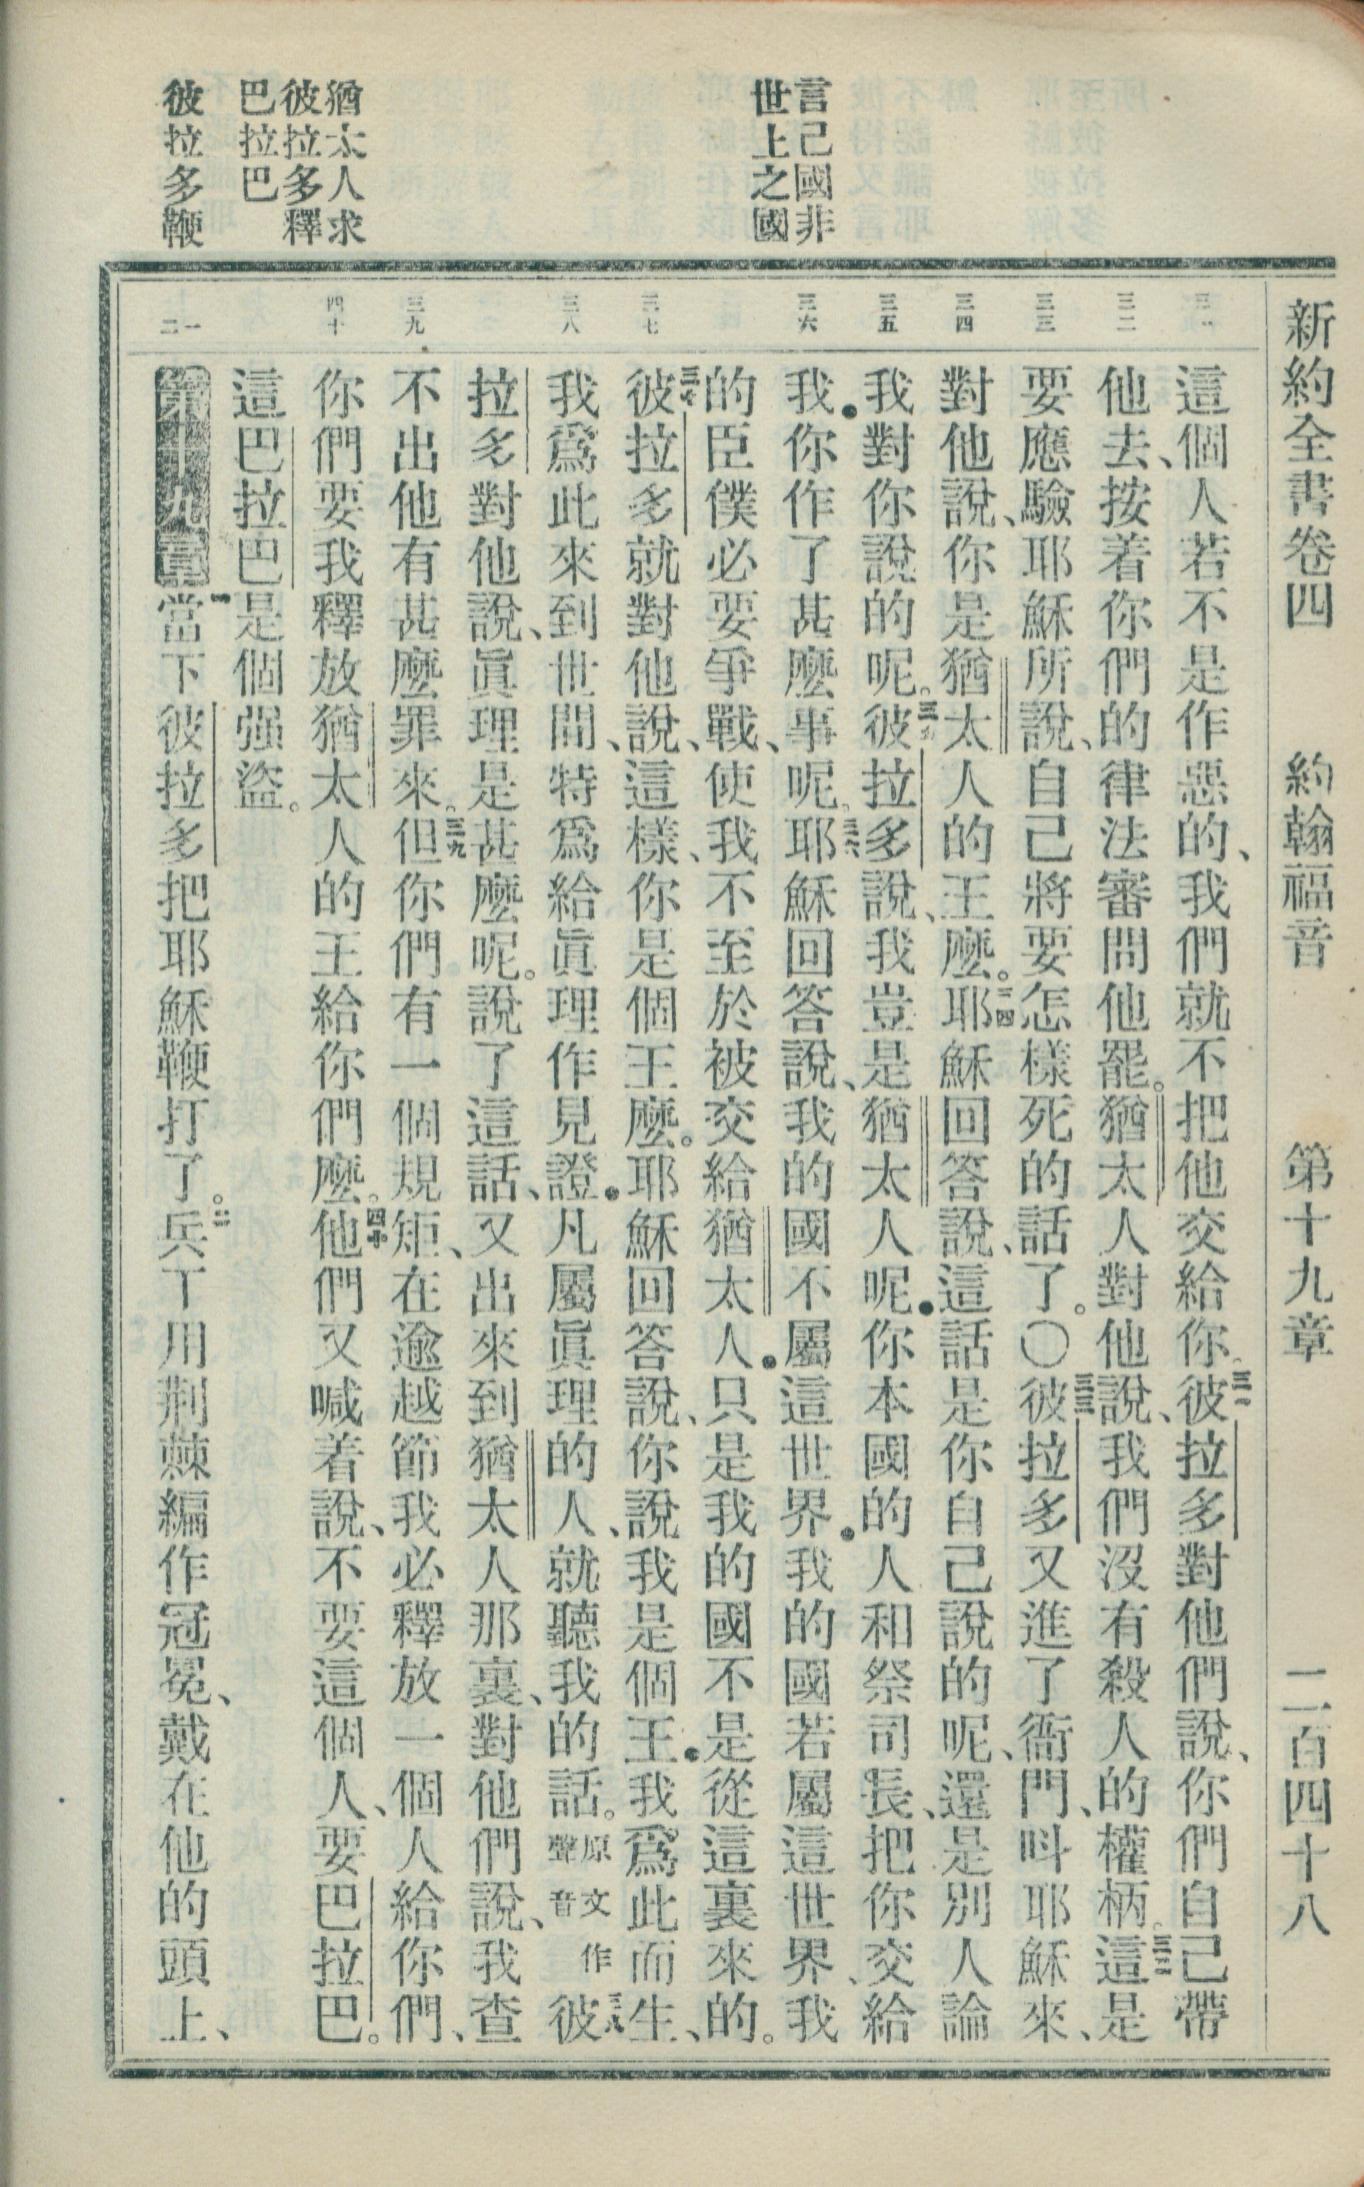 新約全書卷四　約翰福音　第十九章　二百四十八
言己國非
世上之國
猶太人求
彼拉多釋
巴拉巴
彼拉多鞭
三一
三二
三三
三四
三五
三六
三七
三八
三九
四十
一
二
這個人若不是作惡的、我們就不把他交給你。三一彼拉多對他們說、你們自己帶
他去、按着你們的律法審問他罷。猶太人對他說、我們沒有殺人的權柄。三二這是
要應驗耶穌所說、自己將要怎樣死的話了。〇三三彼拉多又進了衙門、呌耶穌來、
對他說、你是猶太人的王麼。三四耶穌回答說、這話是你自己說的呢、還是別人論
我對你說的呢。三五彼拉多說、我豈是猶太人呢●你本國的人和祭司長、把你交給
我●你作了甚麼事呢。三六耶穌回答說、我的國不屬這世界●我的國若屬這世界、我
的臣僕必要爭戰、使我不至於被交給猶太人●只是我的國不是從這裏來的。
三七彼拉多就對他說、這樣、你是個王麼。耶穌回答說、你說我是個王●我爲此而生、
我爲此來到世間、特爲給眞理作見證●凡屬眞理的人、就聽我的話。原文作聲音三八彼
拉多對他說、眞理是甚麼呢。說了這話、又出來到猶太人那裏、對他們說、我查
不出他有甚麼罪來。三九但你們有一個規矩、在逾越節我必釋放一個人給你們、
你們要我釋放猶太人的王給你們麼。四十他們又喊着說、不要這個人、要巴拉巴。
這巴拉巴是個强盜。
第十九章一當下彼拉多把耶穌鞭打了。二兵丁用荆棘編作冠冕、戴在他的頭上、